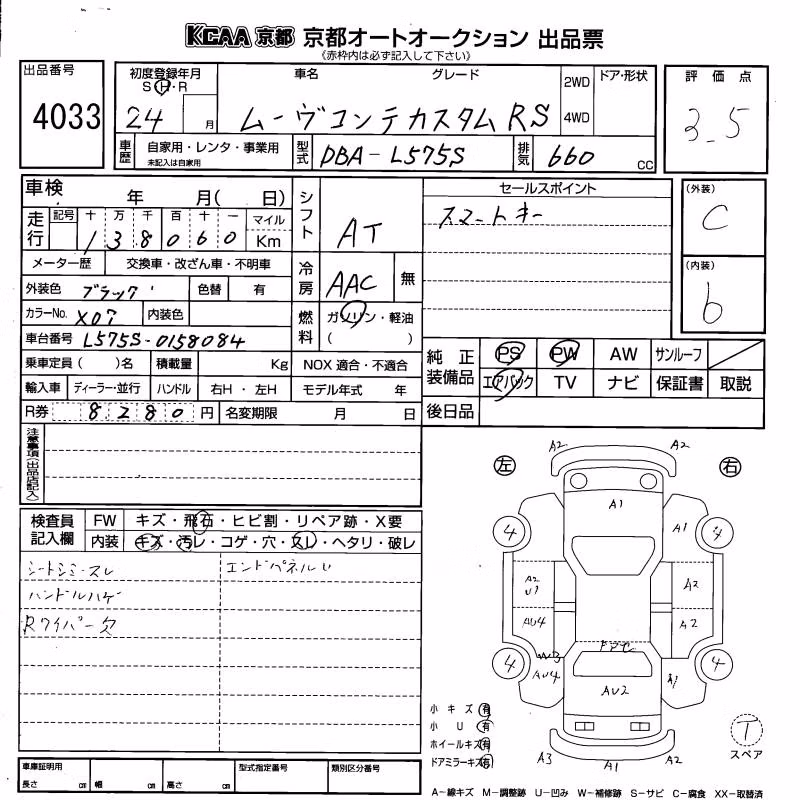 KCAA 京都 京都オートオークション 出品票
(赤枠内は必ず記入して下さい)
出品番号
4033
初度登録年月
S・H・R
24 月
車名 グレード
ムーヴコンテカスタム RS
2WD
4WD
ドア・形状
評価点
3.5
車歴
自家用・レンタ・事業用
未記入は自家用
型式 DBA-L575S
排気 660 CC
車検 年 月( 日)
走行
記号 十 万 千 百 十 一 マイル
138060 Km
シフト AT
セールスポイント
スマートキー
(外装)
C
(内装)
b
メーター歴 交換車・改ざん車・不明車
冷房 AAC 無
外装色 ブラック 色替 有
カラーNo. X07 内装色
燃料 ガソリン・軽油
( )
車台番号 L575S-0158084
乗車定員( )名 積載量 Kg NOX 適合・不適合
純正装備品
PS PW AW サンルーフ
エアバック TV ナビ 保証書 取説
輸入車 ディーラー・並行 ハンドル 右H・左H モデル年式 年
R券 8280 円 名変期限 月 日
後日品
注意事項(出品店記入)
左 右
A2 A2
A1
A1
4 4
A2 U1 A2
AU4 A2
FPC
W3
4 AU4 4
AU2 A1
検査員記入欄
FW キズ・飛石・ヒビ割・リペア跡・X要
内装 キズ・汚レ・コゲ・穴・スレ・ヘタリ・破レ
シートシミ・スレ エンドパネルU
ハンドルハゲ
Rワイパー欠
小キズ 有
小U 有
ホイールキズ 有
ドアミラーキズ 有
A3 A1 A2
T
スペア
車庫証明用
長さ cm 幅 cm 高さ cm
型式指定番号 類別区分番号
A−線キズ M−調整跡 U−凹み W−補修跡 S−サビ C−腐食 XX−取替済